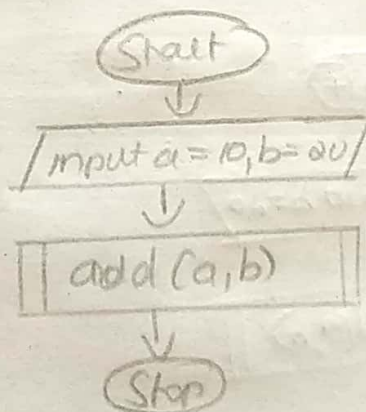 Start
input a = 10, b = 20
add (a,b)
Stop